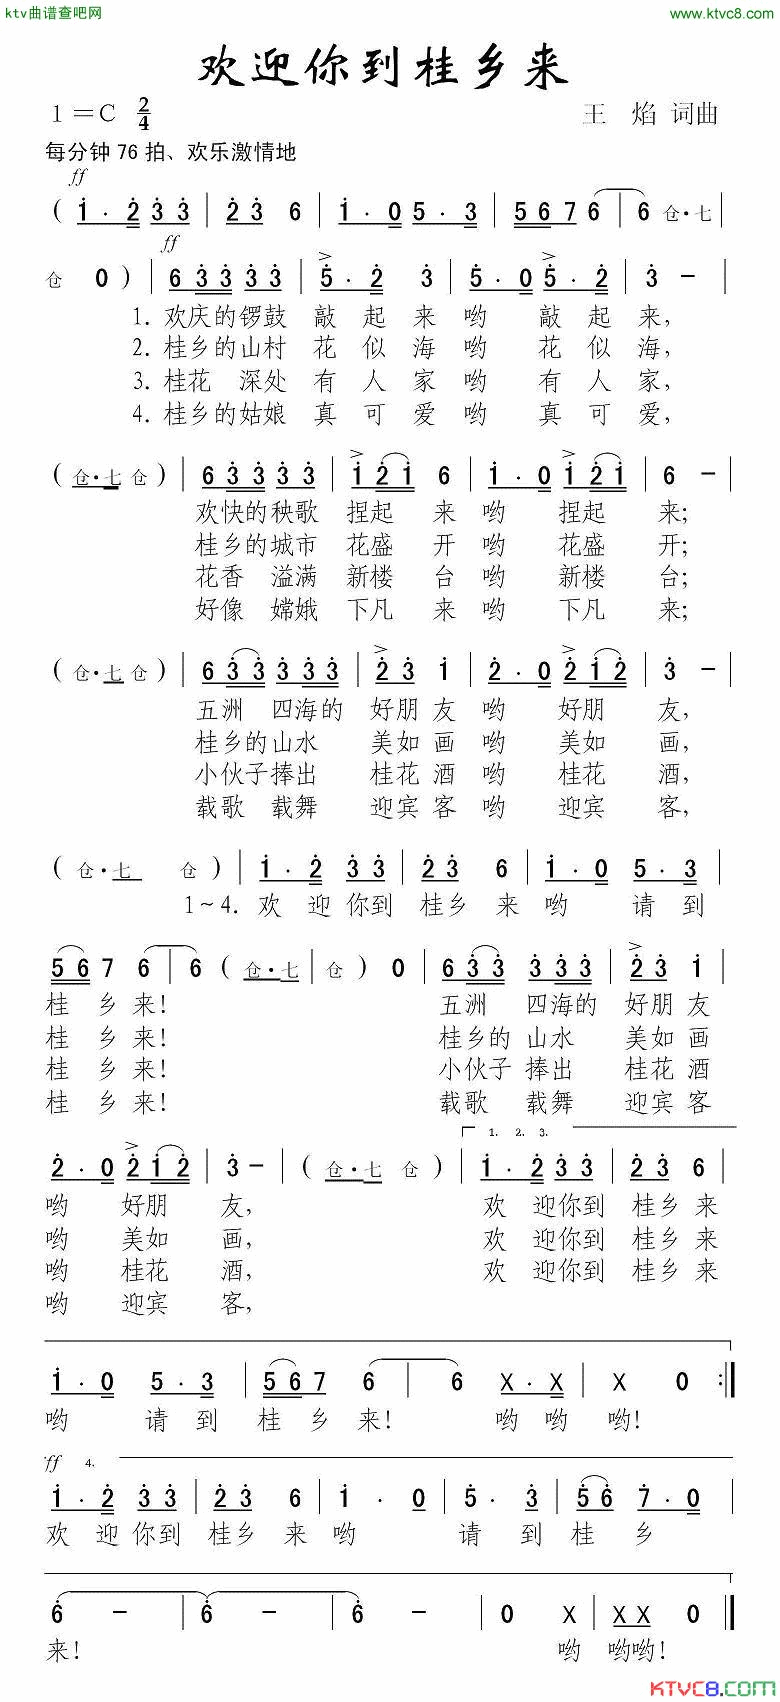 ktv曲谱查吧网 www.ktvc8.com
欢迎你到桂乡来
1=C 2/4 王 焰 词曲
每分钟76拍、欢乐激情地
ff
( 1·2 3 3 | 2 3 6 | 1·0 5·3 | 5 6 7 6 | 6 仓·七 |
ff
仓 0 ) | 6 3 3 3 3 | 5·2 3 | 5·0 5·2 | 3 - |
1. 欢庆的锣鼓 敲 起 来 哟 敲 起 来,
2. 桂乡的山村 花 似 海 哟 花 似 海,
3. 桂花 深处 有 人 家 哟 有 人 家,
4. 桂乡的姑娘 真 可 爱 哟 真 可 爱,
( 仓·七 仓 ) | 6 3 3 3 3 | 1 2 1 6 | 1·0 1 2 1 | 6 - |
欢快的秧歌 捏起 来 哟 捏起 来;
桂乡的城市 花盛 开 哟 花盛 开;
花香 溢满 新楼 台 哟 新楼 台;
好像 嫦娥 下凡 来 哟 下凡 来;
( 仓·七 仓 ) | 6 3 3 3 3 3 | 2 3 1 | 2·0 2 1 2 | 3 - |
五洲 四海的 好朋 友 哟 好朋 友,
桂乡的山水 美如 画 哟 美如 画,
小伙子捧出 桂花 酒 哟 桂花 酒,
载歌 载舞 迎宾 客 哟 迎宾 客,
( 仓·七 仓 ) | 1·2 3 3 | 2 3 6 | 1·0 5·3 |
1~4. 欢 迎 你到 桂乡 来 哟 请 到
5 6 7 6 | 6 ( 仓·七 | 仓 ) 0 | 6 3 3 3 3 3 | 2 3 1 |
桂 乡 来! 五洲 四海的 好朋 友
桂 乡 来! 桂乡的 山水 美如 画
桂 乡 来! 小伙子 捧出 桂花 酒
桂 乡 来! 载歌 载舞 迎宾 客
1. 2. 3.
2·0 2 1 2 | 3 - | ( 仓·七 仓 ) | 1·2 3 3 | 2 3 6 |
哟 好朋 友, 欢 迎你到 桂乡 来
哟 美如 画, 欢 迎你到 桂乡 来
哟 桂花 酒, 欢 迎你到 桂乡 来
哟 迎宾 客,
1·0 5·3 | 5 6 7 6 | 6 X·X | X 0 :|
哟 请 到 桂 乡 来! 哟 哟 哟!
ff 4.
1·2 3 3 | 2 3 6 | 1 · 0 | 5 · 3 | 5 6 7·0 |
欢 迎 你到 桂乡 来 哟 请 到 桂 乡
6 - | 6 - | 6 - | 0 X | X X 0 |
来! 哟 哟哟!
KTVC8.com